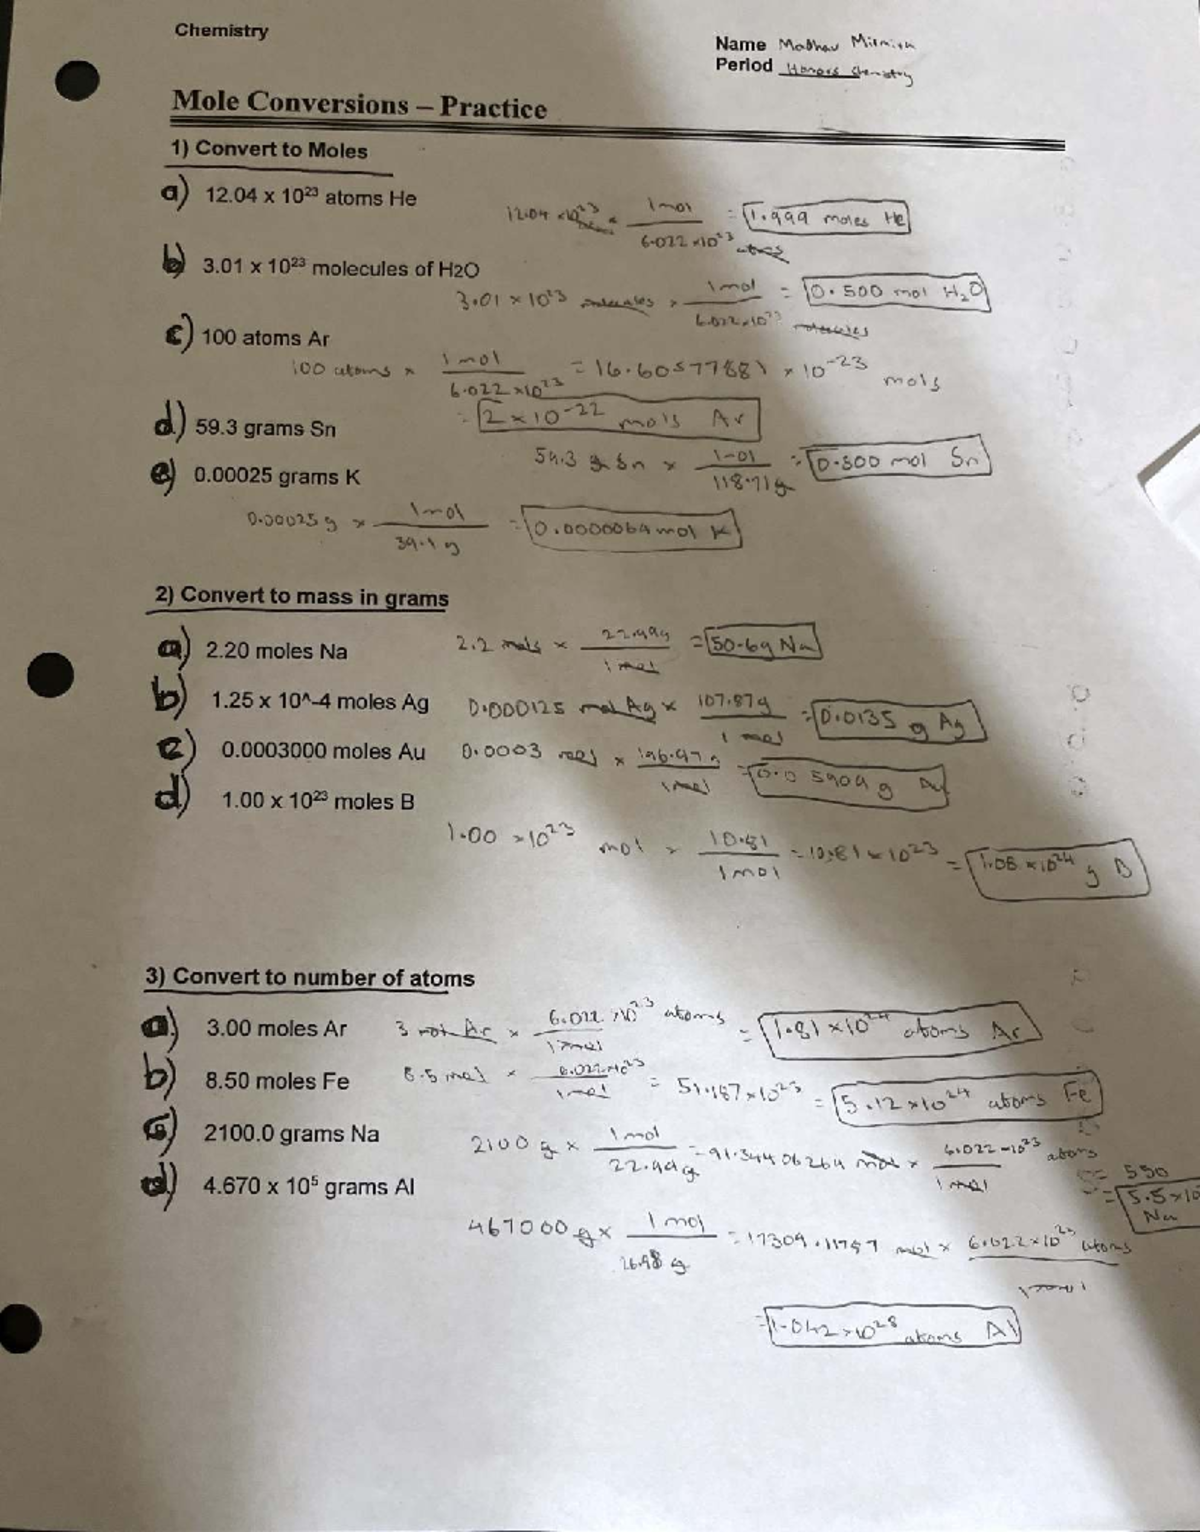 Chemistry
Name Madhav
Period Honors Chemistry
Mole Conversions – Practice
1) Convert to Moles
a) 12.04 x 10²³ atoms He
12.04 × 10²³ atoms × 1 mol / 6.022 × 10²³ atoms = 1.999 moles He
b) 3.01 x 10²³ molecules of H2O
3.01 × 10²³ molecules × 1 mol / 6.022 × 10²³ molecules = 0.500 mol H₂O
c) 100 atoms Ar
100 atoms × 1 mol / 6.022 × 10²³ = 16.60577881 × 10⁻²³ mols
= 2 × 10⁻²² mols Ar
d) 59.3 grams Sn
59.3 g Sn × 1 mol / 118.71 g = 0.500 mol Sn
e) 0.00025 grams K
0.00025 g × 1 mol / 39.1 g = 0.0000064 mol K
2) Convert to mass in grams
a) 2.20 moles Na 2.2 mols × 22.99g / 1 mol = 50.6g Na
b) 1.25 x 10^-4 moles Ag 0.000125 mol Ag × 107.87g / 1 mol = 0.0135 g Ag
c) 0.0003000 moles Au 0.0003 mol × 196.97 g / 1 mol = 0.05909 g Au
d) 1.00 x 10²³ moles B
1.00 × 10²³ mol × 10.81 / 1 mol = 10.81 × 10²³ = 1.08 × 10²⁴ g B
3) Convert to number of atoms
a) 3.00 moles Ar 3 mol Ar × 6.022 × 10²³ atoms / 1 mol = 1.81 × 10²⁴ atoms Ar
b) 8.50 moles Fe 8.5 mol × 6.022 × 10²³ / 1 mol = 51.187 × 10²³ = 5.12 × 10²⁴ atoms Fe
c) 2100.0 grams Na
2100 g × 1 mol / 22.99 g = 91.34406264 mol × 6.022 × 10²³ atoms / 1 mol
= 550
= 5.5 × 10
Na
d) 4.670 x 10⁵ grams Al
467000 g × 1 mol / 26.98 g = 17309.11797 mol × 6.022 × 10²³ atoms / 1 mol
= 1.042 × 10²⁸ atoms Al